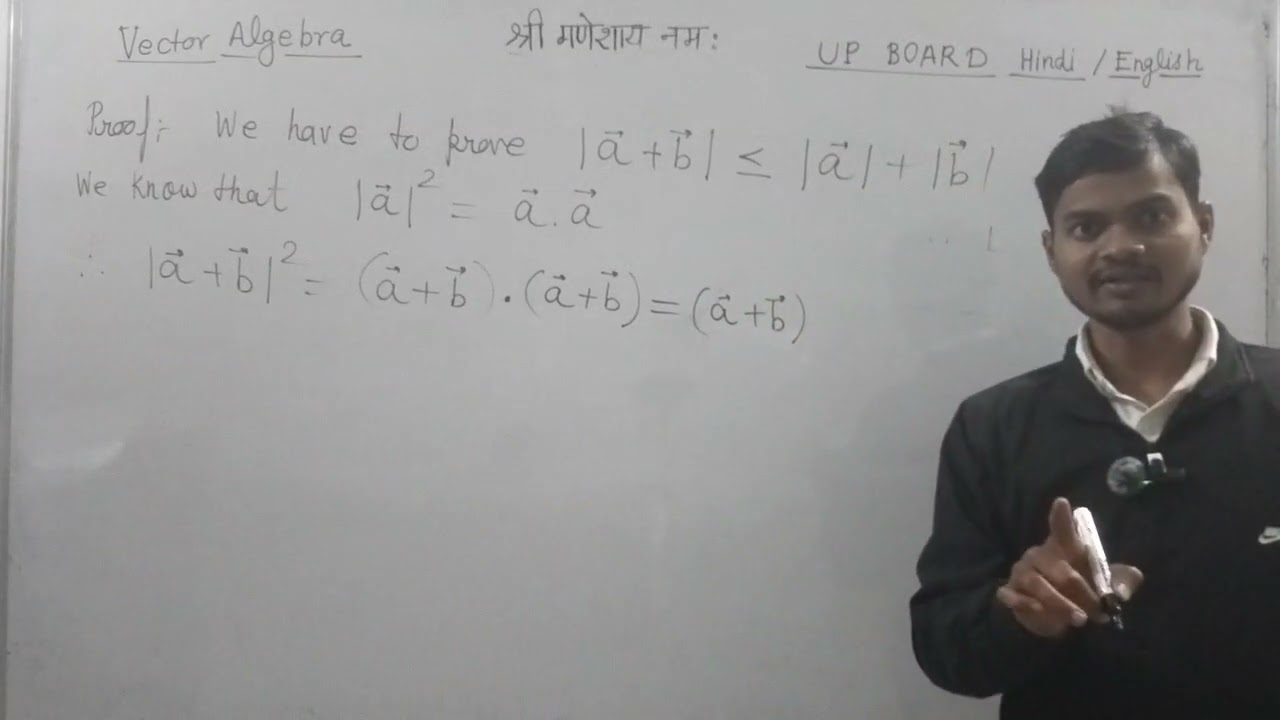 Vector Algebra
श्री गणेशाय नमः
UP BOARD Hindi / English
Proof:- We have to prove |a⃗ + b⃗| ≤ |a⃗| + |b⃗|
We know that |a⃗|² = a⃗ . a⃗
∴ |a⃗ + b⃗|² = (a⃗ + b⃗) · (a⃗ + b⃗) = (a⃗ + b⃗)